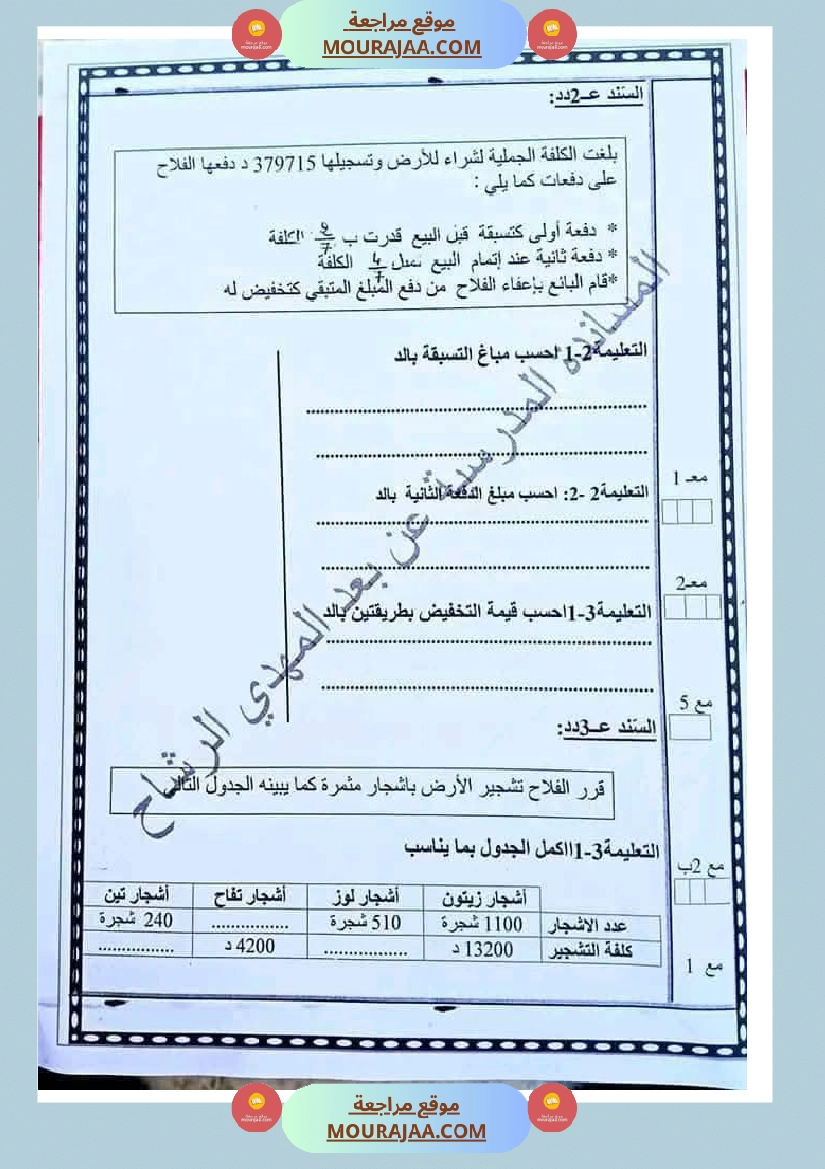 موقع مراجعة
MOURAJAA.COM
السند عــ2دد:
بلغت الكلفة الجملية لشراء للأرض وتسجيلها 379715 د دفعها الفلاح
على دفعات كما يلي :
* دفعة أولى كتسبقة قبل البيع قدرت ب الكلفة
* دفعة ثانية عند إتمام البيع تمثل 4/7 الكلفة
*قام البائع بإعفاء الفلاح من دفع المبلغ المتبقي كتخفيض له
التعليمة2-1 احسب مبلغ التسبقة بالد
معـ 1
التعليمة2 -2: احسب مبلغ الدفعة الثانية بالد
معـ2
التعليمة3-1احسب قيمة التخفيض بطريقتين بالد
مع 5
السند عــ3دد:
قرر الفلاح تشجير الأرض باشجار مثمرة كما يبينه الجدول التالي
التعليمة3-1ااكمل الجدول بما يناسب
مع 2ب
أشجار زيتون أشجار لوز أشجار تفاح أشجار تين
عدد الاشجار 1100 شجرة 510 شجرة ................ 240 شجرة
كلفة التشجير 13200 د ................ 4200 د ................
مع 1
المساندة المدرسية عن بعد المهدي الرشاح
موقع مراجعة
MOURAJAA.COM